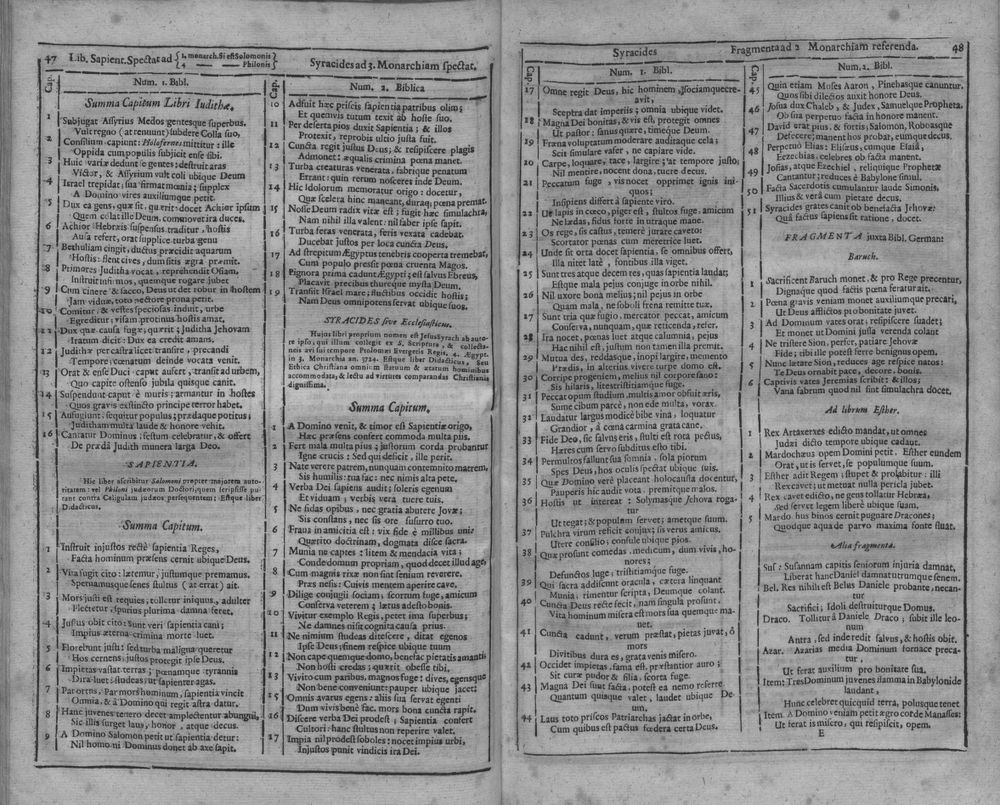 47 Lib. Sapient. Spectat ad { 2. monarch. Si est Solomonis
4 — — Philonis }
Syracides ad 3. Monarchiam spectat.
Cap.
Num. 1. Bibl.
Summa Capitum Libri Iudithæ.
1 Subjugat Assyrius Medos gentesque superbus.
Vult regno (at renuunt) subdere Cuncta suo,
2 Consilium capiunt: Holofernes mittitur: ille
Oppida cum populis subjicit ense sibi.
3 Huic variæ dedunt se gentes: destruit aras
Victor, & Assyrium vult coli ubique Deum
4 Israel trepidat; sua firmat mœnia; supplex
A Domino vires auxiliumque petit.
5 Dux ea gens, quæ sit, quærit: docet Achior ipsum
Quem colat ille Deum. commovet ira duces.
6 Achior Hebræis suspensus traditur, hostis
Ausa refert, orat supplice turba genu
7 Bethuliam cingit, ductus præcidit aquarum
Hostis: flent cives, dum sitis ægra præmit.
8 Primores Juditha vocat, reprehendit Osiam,
Instruit infimos, quemque rogare jubet
9 Cum cinere & sacco, Deus ut det robur in hostem
Jam viduæ, toto pectore prona petit.
10 Comitur, & vestes speciosas induit, urbe
Egreditur: visam protinus hostis amat,
11 Dux quæ causa fugæ, quærit; Juditha Jehovam
Iratum dicit: Dux ea credit amans.
12 Judithæ per castra licet transire, precandi
Tempore, cœnatum deinde vocata venit.
13 Orat & ense Duci caput aufert, transit ad urbem,
Quo capite ostenso jubila quisque canit.
14 Suspendunt caput è muris; armantur in hostes
Quos gravis exstincto principe terror habet.
15 Aufugiunt: sequitur populus; prædaque potitus;
Juditham multa laude & honore vehit.
16 Cantatur Dominus: festum celebratur, & offert
De prædâ Judith munera larga Deo.
SAPIENTIA.
Hic liber ascribitur Salomoni propter majorem autoritatem:
vel Philoni judæorum Doctori, quem scripsisse putant
contra Caligulam judæos persequentem: Estque liber
Didacticus.
Summa Capitum.
1 Instruit injustos rectè sapientia Reges,
Facta hominum præsens cernit ubique Deus.
2 Vita fugit cito: lætemur, justumque premamus.
Spernamusque senes stultus (at errat) ait.
3 Mors justi est requies, tolletur iniquus, adulter
Plectetur, spurius plurima damna feret.
4 Justus obit cito: Sunt veri sapientia cani;
Impius æterna crimina morte luet.
5 Florebunt justi: sed turba maligna queretur
Hos cernens; justos protegit ipse Deus.
6 Impietas vastat terras; pœnamque tyrannia
Dira luet: studeas, ut sapienter agas.
7 Par ortus, Par mors hominum, sapientia vincit
Omnia, & à Domino qui regit astra datur.
8 Hanc juvenes tenero decet amplectentur ab ungui,
Sic illis surget laus, honor, atque decus.
9 A Domino Salomon petit ut sapientia detur:
Nil homo ni Dominus donet ab axe sapit.
Cap.
Num. 2. Biblica
10 Adfuit hæc priscis sapientia patribus olim;
Et quemvis tutum texit ab hoste suo.
11 Per deserta pios duxit Sapientia; & illos
Protexit, reprobis ultio justa fuit.
12 Cuncta regit justus Deus; & resipiscere plagis
Admonet: æqualis crimina pœna manet.
13 Turba creaturas venerata, fabrique penatum
Errant; quin rerum noscere inde Deum.
14 Hic Idolorum memoratur origo: docetur,
Quæ scelera hinc maneant, duraq; pœna premat.
15 Nosse Deum radix vitæ est; fugit hæc simulachra,
Nam nihil illa valent: nil faber ipse sapit.
16 Turba feras venerata, feris vexata cadebat.
Ducebat justos per loca cuncta Deus.
17 Ad strepitum Ægyptus tenebris cooperta tremebat,
Cum populo pressit pœna cruenta Magos.
18 Pignora prima cadunt Ægypti; est salvus Ebreus,
Placavit precibus thureque mysta Deum.
19 Transit Israel mare; fluctibus occidit hostis;
Nam Deus omnipotens servat ubique suos.
SYRACIDES sive Ecclesiasticus.
Hujus libri proprium nomen est Jesus Syrach ab autore
ipso, qui illum collegit ex S. Scriptura, & collectaneis
avi sui tempore Ptolomæi Evergetis Regis, 4. Ægypt.
in 3. Monarchia an. 3724. Estque liber Didacticus, Seu
Ethica Christiana omnium statuum & ætatum hominibus
accommodata, & lectu ad virtutes comparandas Christianis
dignissima.
Summa Capitum.
1 A Domino venit, & timor est Sapientiæ origo,
Hæc præsens confert commoda multa piis.
2 Fert mala multa pius; justorum corda probantur
Igne crucis: Sed qui deficit, ille perit.
3 Nate verere patrem, nunquam contemnito matrem,
Sis humilis: nutac: nec nimis alta pete.
4 Verba Dei sapiens audit; soleris egenum
Et viduam; verbis vera tuere tuis.
5 Ne fidas opibus, nec gratia abutere Jovæ;
Sis constans, nec sis ore susurro tuo.
6 Fraus in amicitia est: vix fide è millibus unus
Quærito doctrinam, dogmata disce sacra.
7 Munia ne captes: litem & mendacia vita;
Conde domum propriam, quod decet illud age,
8 Cum magnis rixæ non sint senium reverere.
Præs nescis: Cuivis mentem aperire cave.
9 Dilige conjugii sociam; scortum fuge, amicum
Conserva veterem; lætus adesto bonis.
10 Vivitur exemplo Regis, petet ima superbus;
Ne damnes nisi cognita causa prius.
11 Ne nimium studeas ditescere, ditat egenos
Ipse Deus; finem respice ubique tuum
12 Non capè quemque domo, benefac pietatis amantis
Non hosti credas; quærit obesse tibi.
13 Vivito cum paribus, magnos fuge: dives, egensque
Non bene conveniunt: pauper ubique jacet:
15 Omnis avarus egens: aliis sua servat egenti
Dum vivis benè fac. mors bona cuncta rapit.
16 Discere verba Dei prodest; Sapientia confert
Cultori: hanc stultus non reperire valet.
17 Impia nil prodest soboles: nocet impius urbi,
Injustos punit vindicis ira Dei.
Syracides
Fragmenta ad 2 Monarchiam referenda. 48
Cap.
Num. 1. Bibl.
17 Omne regit Deus, hic hominem, sociamque creavit,
Sceptra dat imperiis; omnia ubique videt.
18 Magna Dei bonitas, & vis est, protegit omnes
Ut pastor: sanus quære, timeque Deum.
19 Fræna voluptatum moderare auditaque cela;
Scit simulare vafer, ne capiare vide.
20 Carpe, loquare, tace, largire; at tempore justo;
Nil mentire, nocent dona, tuere decus.
21 Peccatum fuge, vis nocet opprimet ignis iniquos;
Insipiens differt à sapiente viro.
22 Ut lapis in cœco, piger est, stultos fuge. amicum
Ne lædas, fidus forte in utraque mane.
23 Os rege, sis castus, temerè jurare caveto:
Scortator pœnas cum meretrice luet.
24 Unde sit orta docet sapientia, se omnibus offert,
Illa nitet latè, fontibus illa viget.
25 Sunt tres atque decem res, quas sapientia laudat;
Estque mala pejus conjuge in orbe nihil.
26 Nil uxore bona melius; nil pejus in orbe
Quam mala, ne soboli frena remitte tuæ.
27 Sunt tria quæ fugio, mercator peccat, amicum
Conserva, nunquam, quæ reticenda, refer.
28 Ira nocet, pœnas luet atque calumnia, pejus
Hac nihil est, justum non tamen illa premit.
29 Mutua des, reddasque, inopi largire, memento
Prædis, in alterius vivere turpe domo est.
30 Corripe progeniem, melius nil corpore sano:
Sis hilaris, lites tristitiamque fuge.
31 Peccat opum studium, multis amor obfuit æris,
Sume cibum parcè, non ede multa, vorax.
32 Laudatur largus modicè bibe vina, loquatur
Grandior, à cœna carmina grata cane.
33 Fide Deo, sic salvus eris, stulti est rota pectus,
Hæres cum servo subditus esto tibi.
34 Permultos fallunt sua somnia, sola piorum
Spes Deus, hos oculis spectat ubique suis.
35 Quæ Domino verè placeant holocausta docentur,
Pauperis hic audit vota, premitque malos.
36 Hostis ut intereat: Solymasque Jehova rogatur
Ut tegat; & populum servet; ametque suum.
37 Pulchra virum reficit conjux; sis verus amicus.
Utere consilio; consule ubique pios.
38 Quæ prosunt comedas, medicum, dum vivis, honores;
Defunctos luge: tristitiamque fuge.
39 Qui sacra addiscunt oracula, cætera linquant
Munia, rimentur scripta, Deumque colant.
40 Cuncta Deus rectè fecit, nam singula prosunt,
Vita hominum misera est mors sua quemque manet.
41 Cuncta cadunt, verum præstat, pietas juvat, ô mors
Divitibus dura es, grata venis misero.
42 Occidet impietas, fama est, præstantior auro;
Sit curæ pudor & filia, scorta fuge.
43 Magna Dei sunt facta, potest ea nemo referre
Quantum quisque valet, laudent ubique Deum,
44 Laus toto priscos Patriarchas jactat in orbe,
Cum quibus est pactus fœdera certa Deus.
Cap.
Num. 2. Bibl.
45 Quin etiam Moses Aaron, Pinehasque canuntur,
Quos sibi dilectos auxit honore Deus.
46 Josua dux Chaleb, & Judex, Samuelque Propheta,
Ob sua perpetuo facta in honore manent.
47 David erat pius, & fortis, Salomon, Roboasque
Defecere; manent hos probat, eumque decus.
48 Perpetuo Elias: Elisæus, cumque Esaiâ,
Ezechias, celebres ob facta manent.
49 Josias, atque Ezechiel, reliquique Prophetæ
Cantantur; reduces è Babylone simul.
50 Facta Sacerdotis cumulantur laude Simonis,
Illius & vera cum pietate decus.
51 Syracides grates canit ob benefacta Jehovæ:
Quâ factus sapiens sit ratione, docet.
FRAGMENTA juxta Bibl. German:
Baruch.
1 Sacrificent Baruch monet, & pro Rege precentur,
Dignaque quod factis pœna feratur ait.
2 Pœna gravis veniam monet auxiliumque precari,
Ut Deus afflictis pio bonitate juvet.
3 Ad Dominum vates orat; resipiscere suadet;
Et monet ut Domini jussa verenda colant
4 Ne tristere Sion, perfer, patiare Jehovæ
Fide; tibi ille potest ferre benignus opem.
5 Nunc lætare Sion, reduces age pascito natos:
Te Deus ornabit pace, decore, bonis.
6 Captivis vates Jeremias scribit: & illos;
Vana sabrum quod nil sint simulachra docet.
Ad librum Esther.
1 Rex Artaxerxes edicto mandat, ut omnes
Judæi dicto tempore ubique cadant.
2 Mardochæus opem Domini petit. Esther eundem
Orat, ut is servet, se populumque suum.
3 Esther adit Regem; stupet & pro labitur: illi
Rex cavet: ut metuat nulla pericla jubet.
4 Rex cavet edicto, ne gens tollatur Hebræa,
Sed servet legem liberè ubique suam.
5 Mardo hus binos cernit pugnare Dracones;
Quodque aqua de parvo maxima fonte fluat.
Alia fragmenta.
Sus: Susannam capitis seniorum injuria damnat,
Liberat hanc Daniel damnaturumque senem.
Bel. Res nihil est Belus Daniele probante, necantur
Sacrifici; Idoli destruiturque Domus.
Draco. Tollitur à Daniele Draco; subit ille leonum
Antra, sed inde redit salvus, & hostis obit.
Azar. Azarias media Dominum fornace precatur,
Ut ferat auxilium pro bonitate sua.
Item: Tres Dominum juvenes flamma in Babylonide laudant,
Hunc celebret quicquid terra, polusque tenet
Item. A Domino veniam petit ægro corde Manasses:
Ut ferat is misero, qui resipiscit, opem.
E